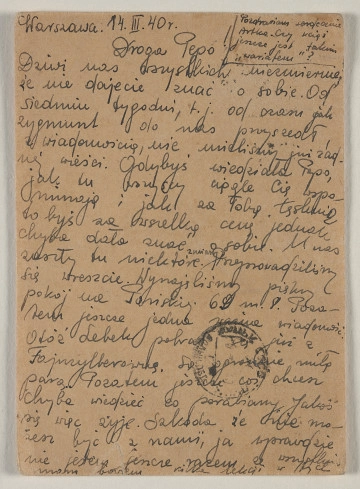 Warszawa. 14. III. 40 r.
Pozdrawiam serdecznie
Czy wciąż
jeszcze jest takim
wariatem"?
Droga Pepo
Dziwi nas wszystkich niezmiernie,
że nie dajecie znać o sobie. Od
siedmiu tygodni, t. j. od czasu jak
Zygmunt do nas przyszedł
z wiadomością, nie mieliśmy już żad-
nej wieści. Gdybyś wiedziała Pepo,
jak tu wszyscy ciągle Cię wspo-
minają i jak za Tobą tęsknią
to byś za wszelką cenę jednak
chyba dała znać o sobie. U nas
zaszły tu niektóre zmiany. Przeprowadziliśmy
się wreszcie. Wynajęliśmy piękny
pokój na Pańskiej 6 m. 1. Poza-
tem jeszcze jedna wiadomość.
Otóż już z
Fajnzylberówną. Są miłą
parą. Pozatem jeszcze coś chcesz
chyba wiedzieć co porabiamy. Jakoś
się więc żyje. Szkoda, że nie mo-
żesz być z nami, ja wprawdzie
nie jestem jeszcze razem ze wszystkimi
bardzo lekcji